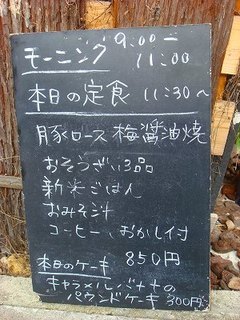 モーニング 9:00ー
11:00
本日の定食 11:30〜
豚ロース梅醤油焼
おそうざい3品
新米ごはん
おみそ汁
コーヒー、おかし付
850円
本日のケーキ
キャラメルバナナの
パウンドケーキ 300円